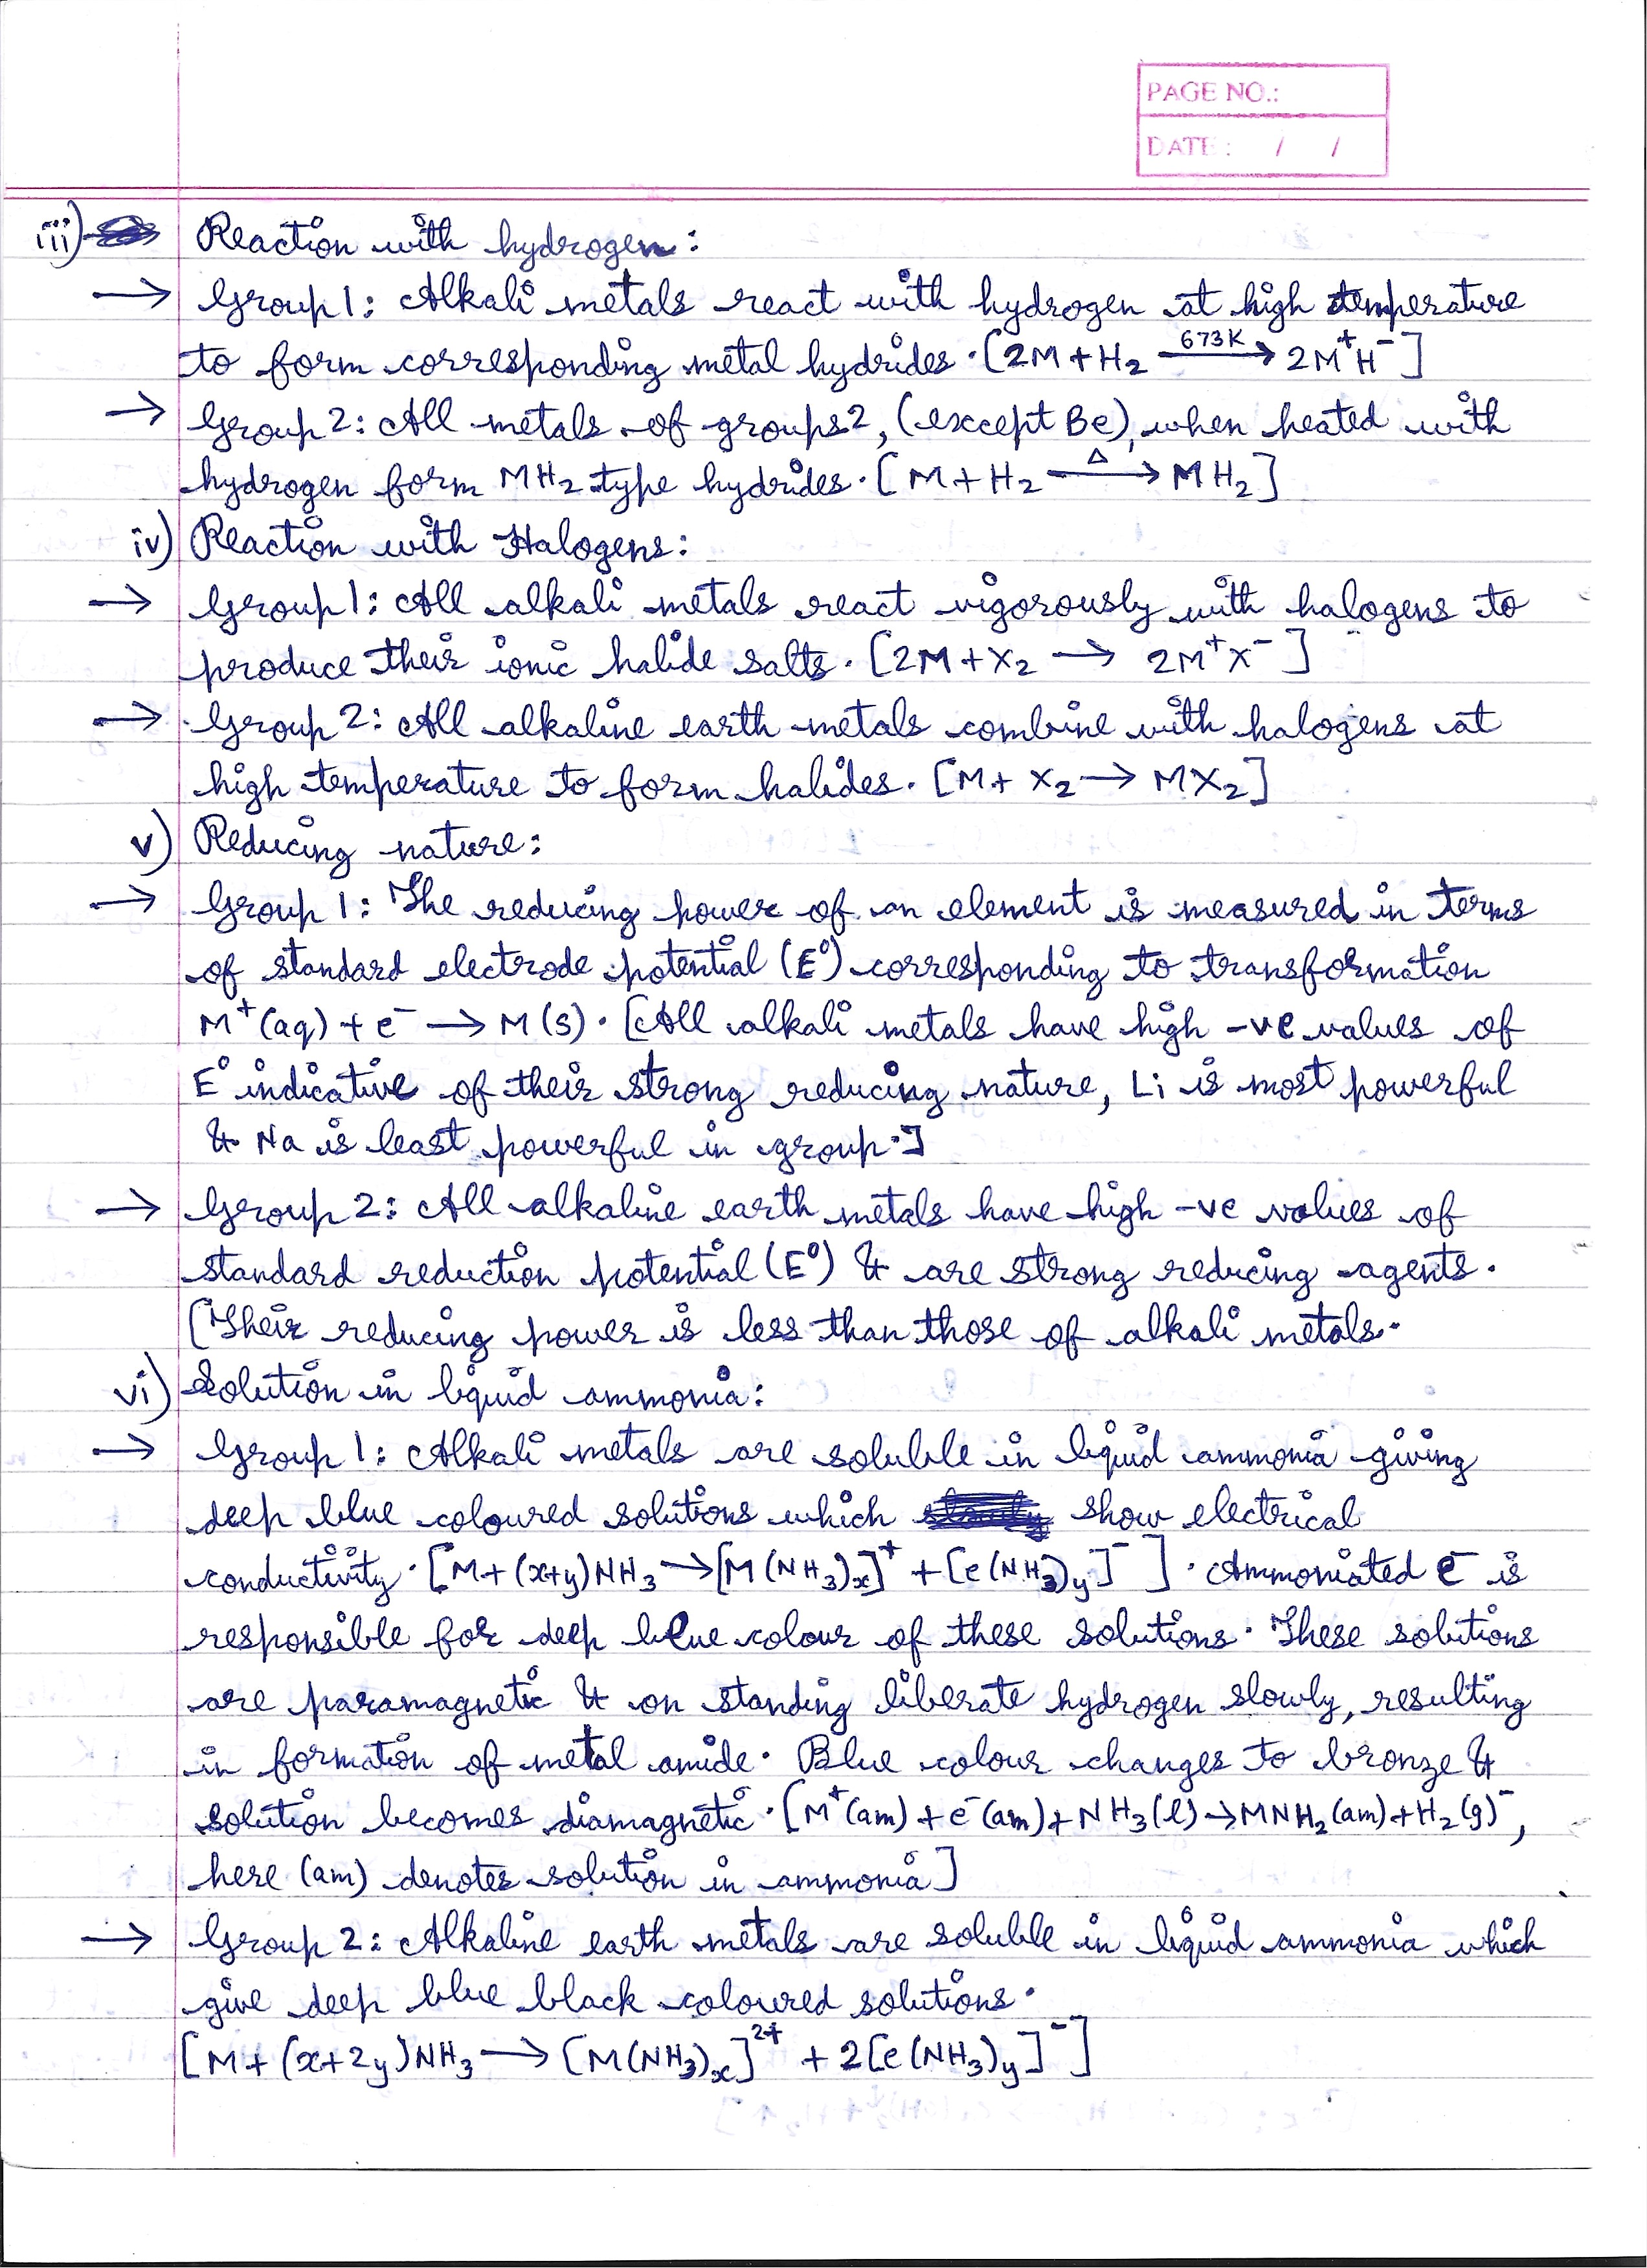 PAGE NO.:
DATE: / /
iii) Reaction with hydrogen:
→ Group 1: Alkali metals react with hydrogen at high temperature
to form corresponding metal hydrides. [2M + H₂ —673K→ 2M⁺H⁻]
→ Group 2: All metals of groups 2, (except Be), when heated with
hydrogen form MH₂ type hydrides. [M + H₂ —Δ→ MH₂]
iv) Reaction with Halogens:
→ Group 1: All alkali metals react vigorously with halogens to
produce their ionic halide salts. [2M + X₂ → 2M⁺X⁻]
→ Group 2: All alkaline earth metals combine with halogens at
high temperature to form halides. [M + X₂ → MX₂]
v) Reducing nature:
→ Group 1: The reducing power of an element is measured in terms
of standard electrode potential (E°) corresponding to transformation
M⁺(aq) + e⁻ → M(s). [All alkali metals have high -ve values of
E° indicative of their strong reducing nature, Li is most powerful
& Na is least powerful in group.]
→ Group 2: All alkaline earth metals have high -ve values of
standard reduction potential (E°) & are strong reducing agents.
[Their reducing power is less than those of alkali metals.
vi) Solution in liquid ammonia:
→ Group 1: Alkali metals are soluble in liquid ammonia giving
deep blue coloured solutions which show electrical
conductivity. [M + (x+y)NH₃ → [M(NH₃)ₓ]⁺ + [e(NH₃)y]⁻]. Ammoniated e⁻ is
responsible for deep blue colour of these solutions. These solutions
are paramagnetic & on standing liberate hydrogen slowly, resulting
in formation of metal amide. Blue colour changes to bronze &
solution becomes diamagnetic. [M⁺(am) + e⁻(am) + NH₃(l) → MNH₂(am) + H₂(g)⁻,
here (am) denotes solution in ammonia]
→ Group 2: Alkaline earth metals are soluble in liquid ammonia which
give deep blue black coloured solutions.
[M + (x+2y)NH₃ → [M(NH₃)ₓ]²⁺ + 2[e(NH₃)y]⁻]